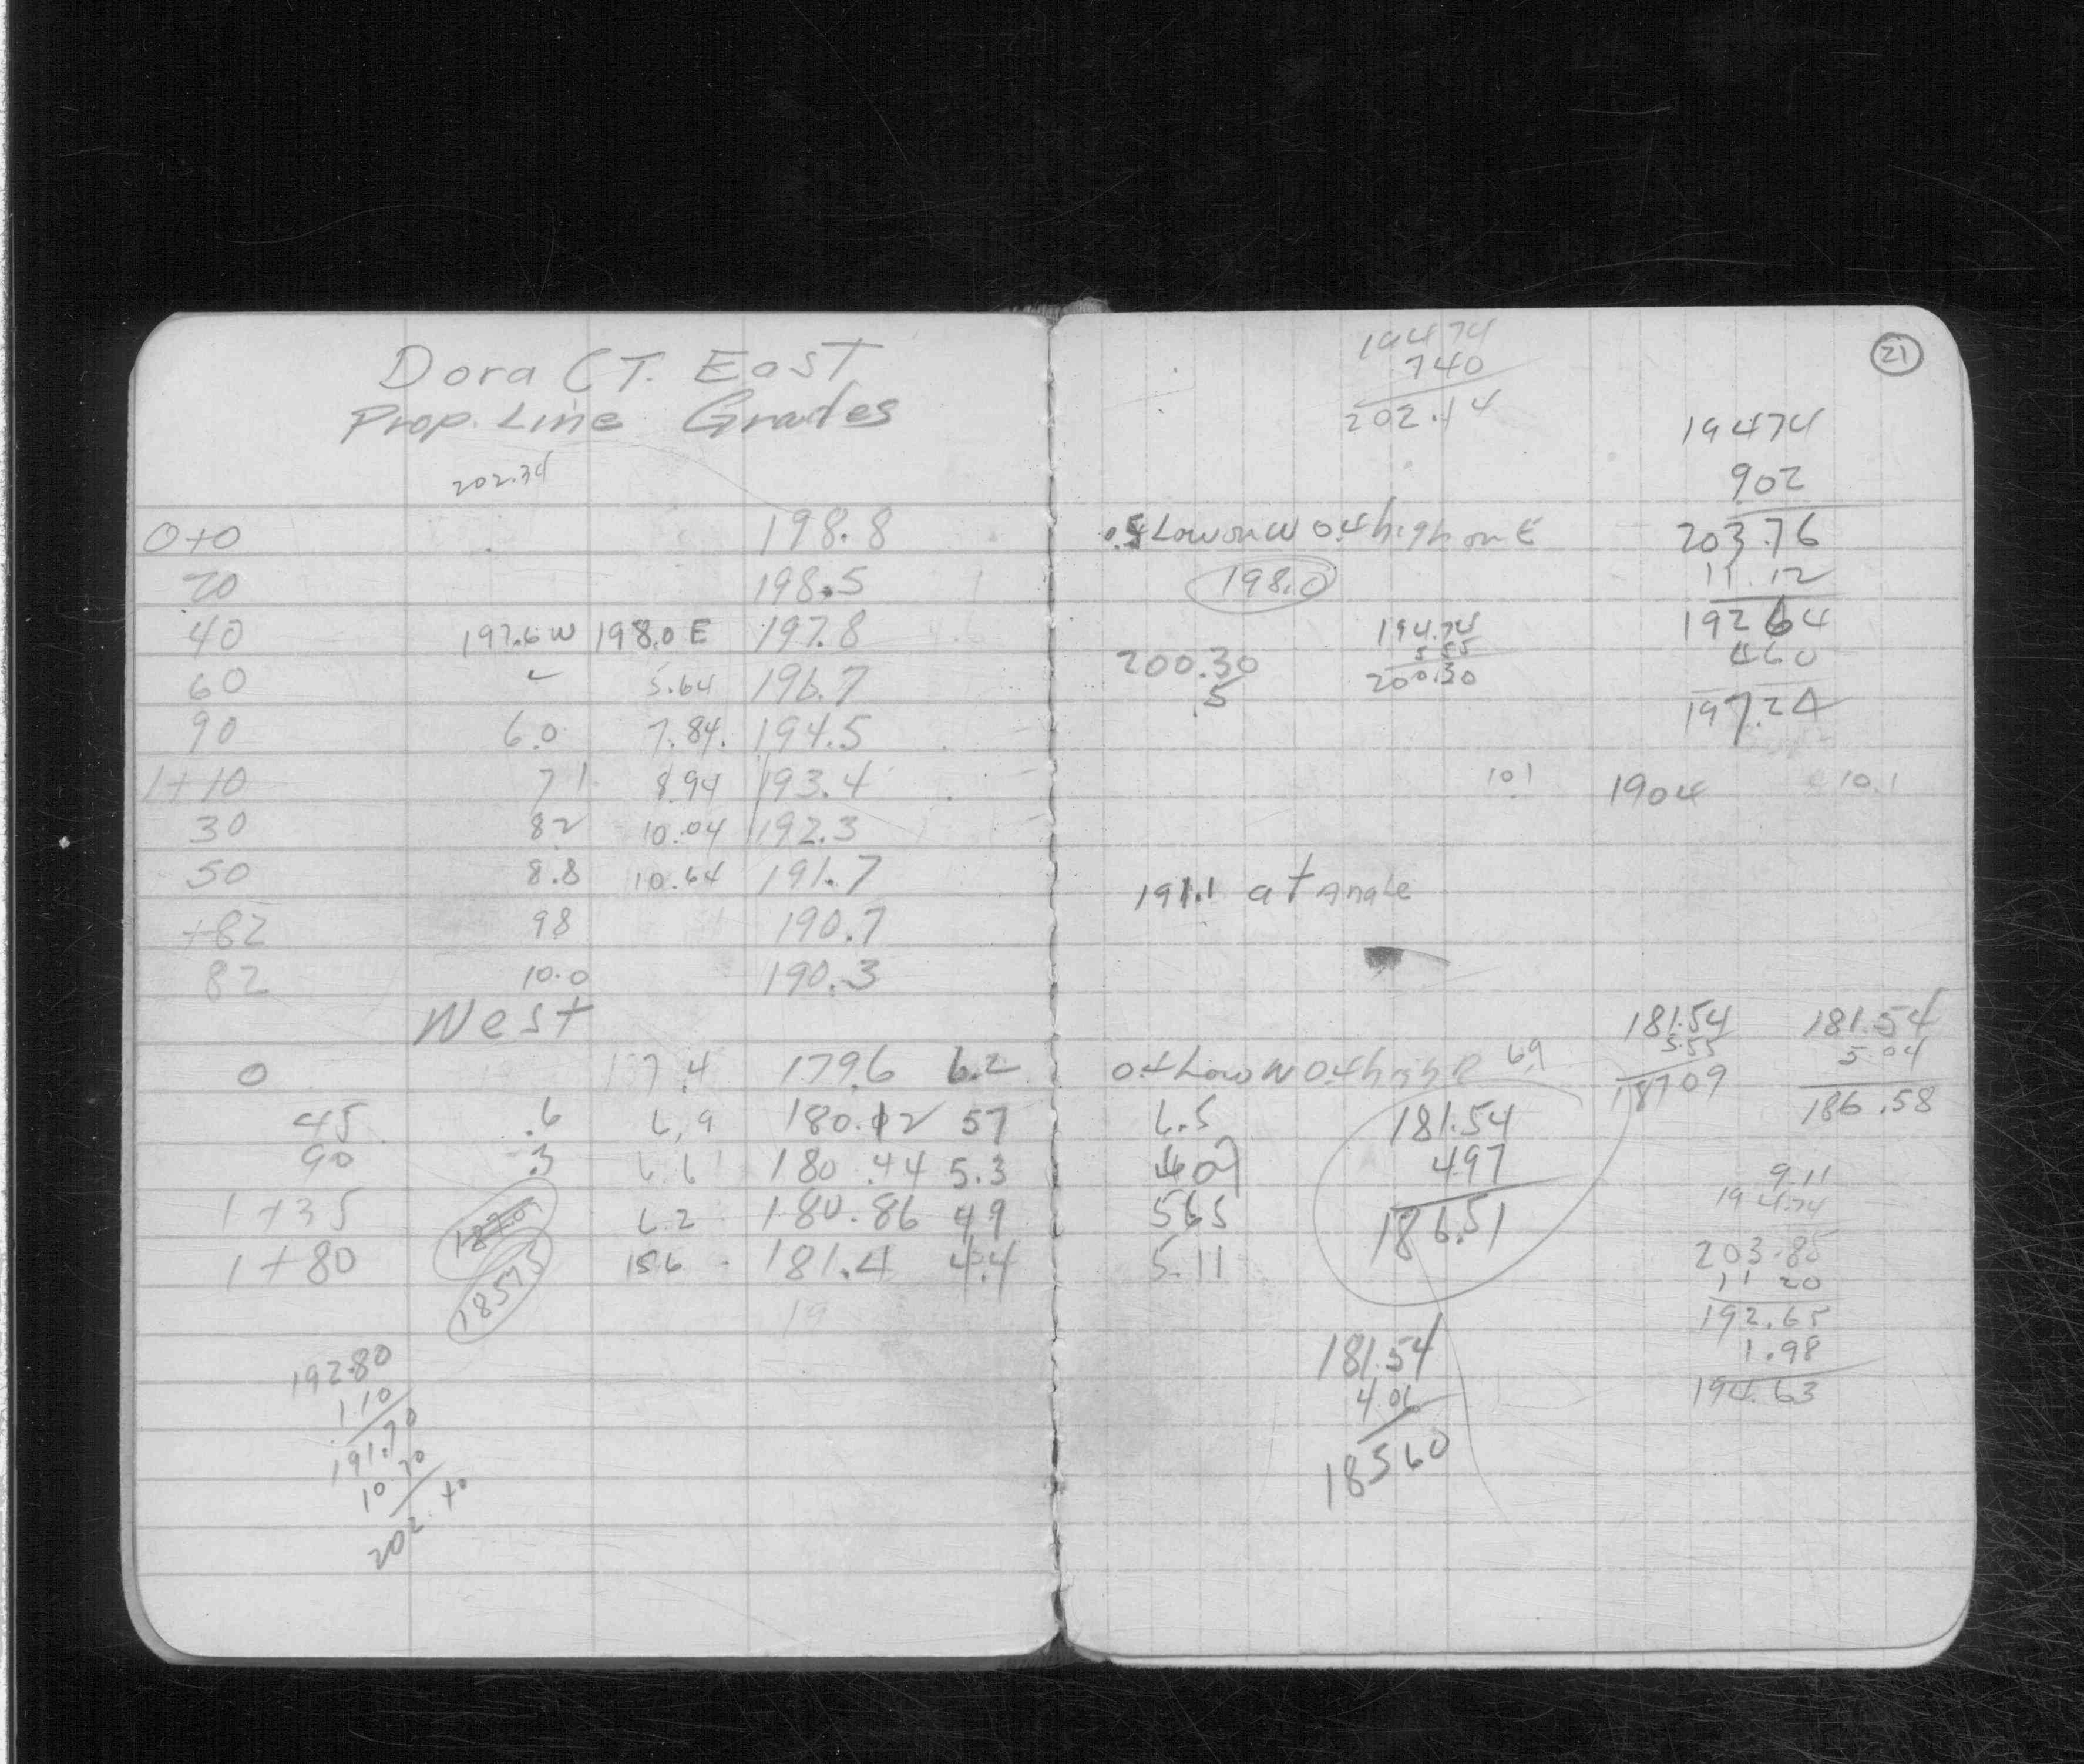 Dora CT. East
Prop. Line Grades
202.34
0+0 198.8
20 198.5
40 197.6 W 198.0 E 197.8
60 5.64 196.7
90 6.0 7.84 194.5
1+10 7 1 8.94 193.4
30 82 10.04 192.3
50 8.8 10.64 191.7
+82 98 190.7
82 10.0 190.3
West
0 17.4 179.6 6.2
45 .6 6.9 180.12 57
90 .3 6.6 180.44 5.3
1+35 187.09 6.2 180.86 49
1+80 18575 156 181.4 4.4
192.80
1.10
191.70
10.70
202.40
21
19474
740
202.14
19474
902
203.76
11.12
19264
460
197.24
.5 Low on W 0.4 high on E
198.0
194.74
5.55
200.30
200.30
.5
10.1 1904 10.1
191.1 at Angle
181.54
5.55
18709
181.54
5.04
186.58
0.4 Low W 0.4 high E 6.9
6.5
565
5.11
181.54
497
186.51
9.11
194.74
203.85
11 20
192.65
1.98
194.63
181.54
4.06
18560